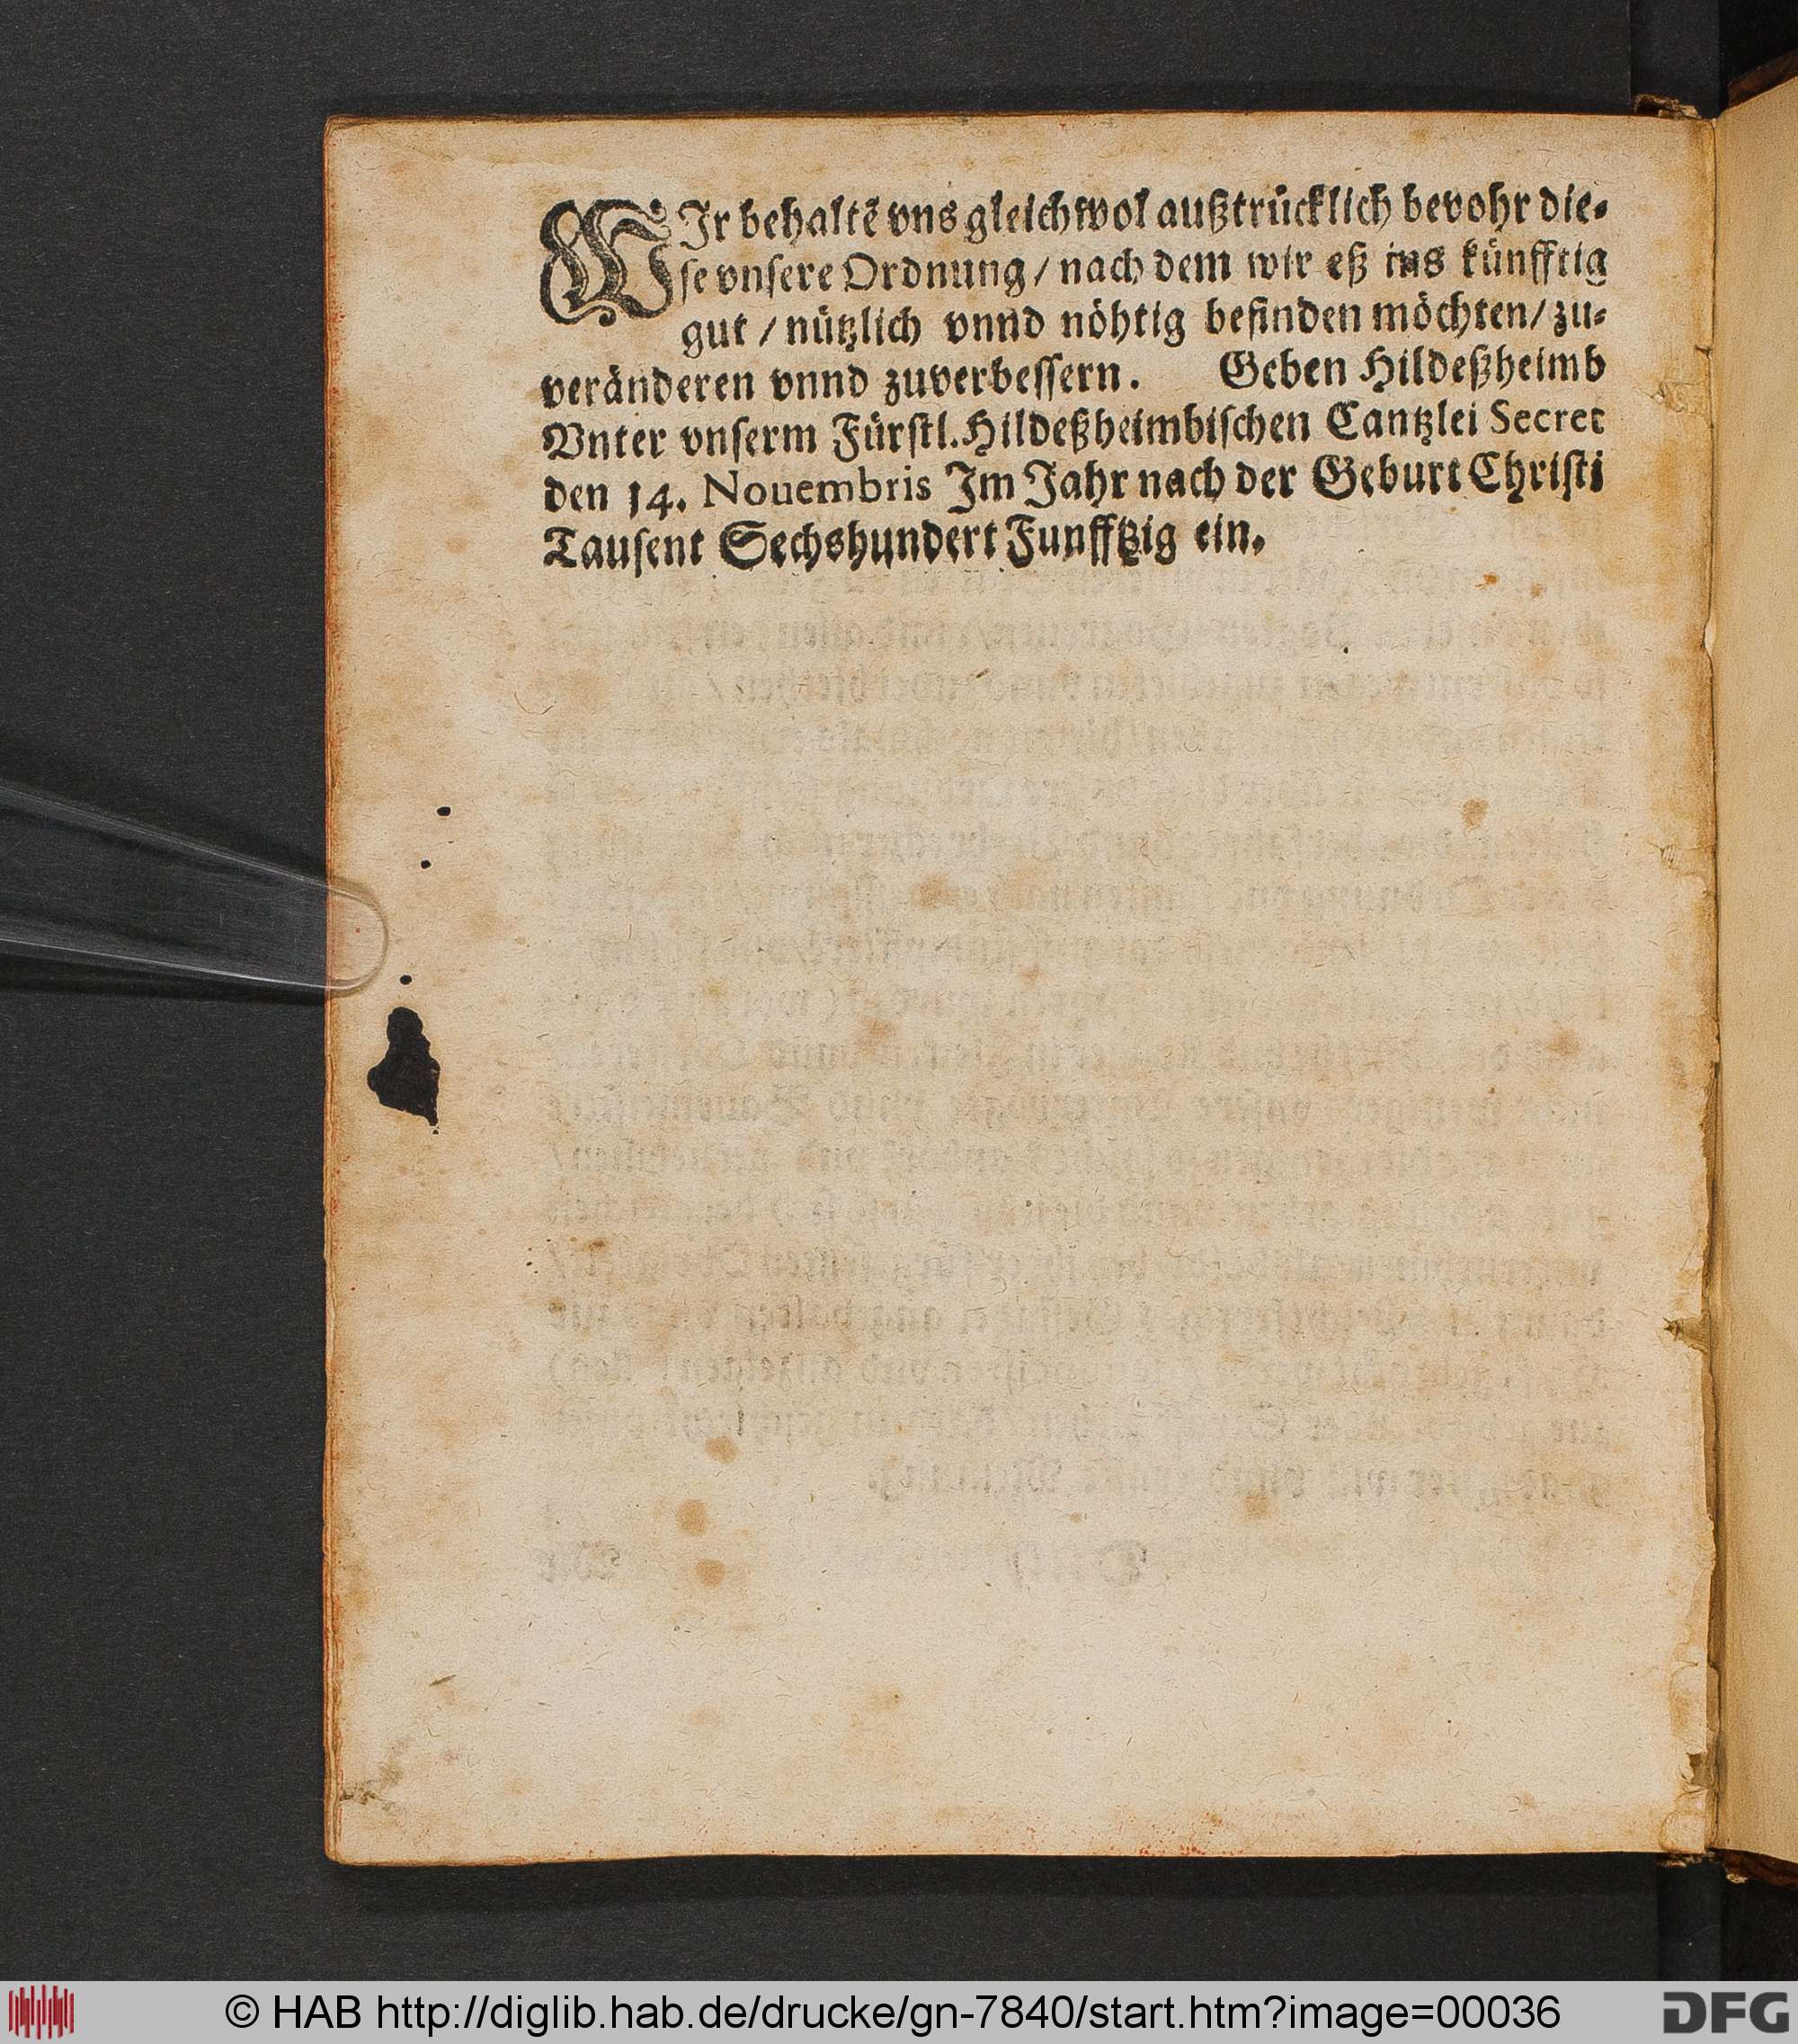 WIr behaltē vns gleichwol außtrücklich bevohr die-
se vnsere Ordnung/ nach dem wir eß ins künfftig
gut / nützlich vnnd nöhtig befinden möchten/ zu-
veränderen vnnd zuverbessern. Geben Hildeßheimb
Vnter vnserm Fürstl. Hildeßheimbischen Cantzlei Secret
den 14. Nouembris Im Jahr nach der Geburt Christi
Tausent Sechshundert Funfftzig ein.
© HAB http://diglib.hab.de/drucke/gn-7840/start.htm?image=00036
DFG